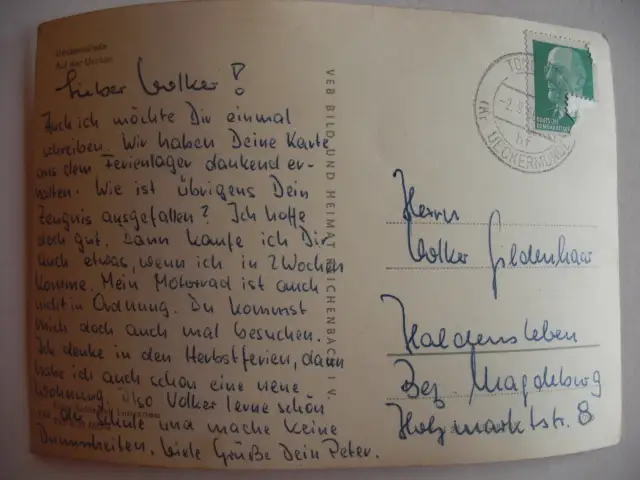 Ueckermünde
Auf der Uecker
Lieber Volker!
Auch ich möchte Dir einmal
schreiben. Wir haben Deine Karte
aus dem Ferienlager dankend er-
halten. Wie ist übrigens Dein
Zeugnis ausgefallen? Ich hoffe
doch gut. Dann kaufe ich Dir
auch etwas, wenn ich in 2 Wochen
komme. Mein Motorrad ist auch
nicht in Ordnung. Du kommst
mich doch auch mal besuchen.
Ich denke in den Herbstferien, dann
habe ich auch schon eine neue
Wohnung. Also Volker lerne schön
in der Schule und mache keine
Dummheiten. Viele Grüße Dein Peter.
VEB BILD UND HEIMAT REICHENBACH I. V.
DEUTSCHE
DEMOKRATISCHE
(Kr. UECKERMÜNDE)
Herrn
Volker Gildenhaar
Haldensleben
Bez. Magdeburg
Holzmarktstr. 8